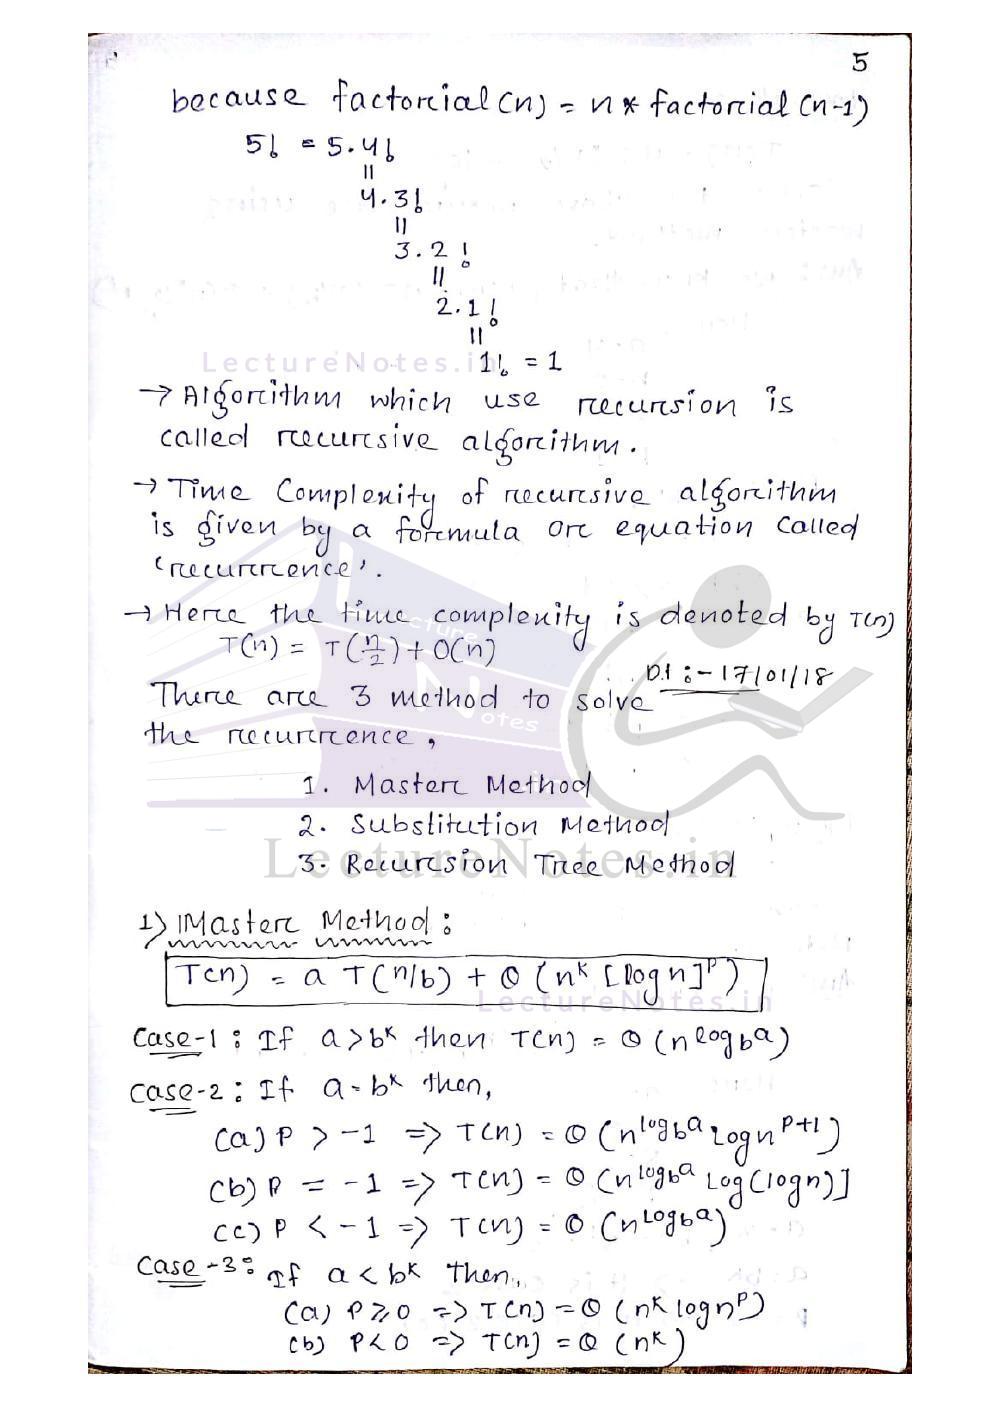 5
because factorial (n) = n * factorial (n-1)
5! = 5.4!
||
4.3!
||
3.2!
||
2.1!
||
LectureNotes.in
1! = 1
→ Algorithm which use recursion is
called recursive algorithm.
→ Time Complexity of recursive algorithm
is given by a formula or equation called
'recurrence'.
→ Here the time complexity is denoted by T(n)
T(n) = T(n/2) + O(n)
Dt :- 17/01/18
There are 3 method to solve
the recurrence,
1. Master Method
2. Substitution Method
3. Recursion Tree Method
LectureNotes.in
1) Master Method :
T(n) = a T(n/b) + Θ (n^k [log n]^p)
LectureNotes.in
Case-1 : If a > b^k then T(n) = Θ (n^log_b a)
Case-2 : If a = b^k then,
(a) P > -1 => T(n) = Θ (n^log_b a log n^P+1)
(b) P = -1 => T(n) = Θ (n^log_b a log(log n)]
(c) P < -1 => T(n) = Θ (n^log_b a)
Case-3 : If a < b^k then,
(a) P ≥ 0 => T(n) = Θ (n^k log n^P)
(b) P < 0 => T(n) = Θ (n^k)